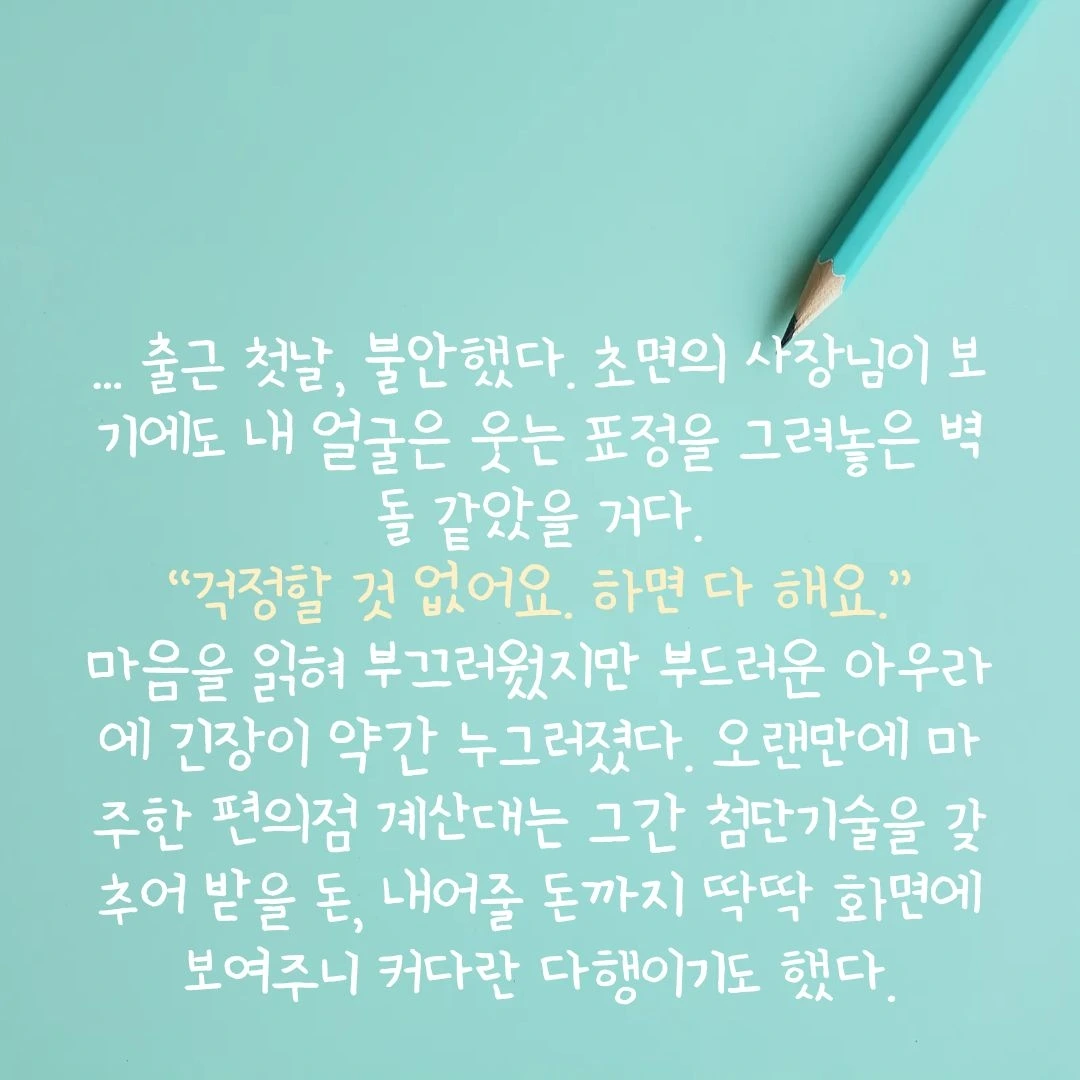 ... 출근 첫날, 불안했다. 초면의 사장님이 보
기에도 내 얼굴은 웃는 표정을 그려놓은 벽
돌 같았을 거다.
“걱정할 것 없어요. 하면 다 해요.”
마음을 읽혀 부끄러웠지만 부드러운 아우라
에 긴장이 약간 누그러졌다. 오랜만에 마
주한 편의점 계산대는 그간 첨단기술을 갖
추어 받을 돈, 내어줄 돈까지 딱딱 화면에
보여주니 커다란 다행이기도 했다.